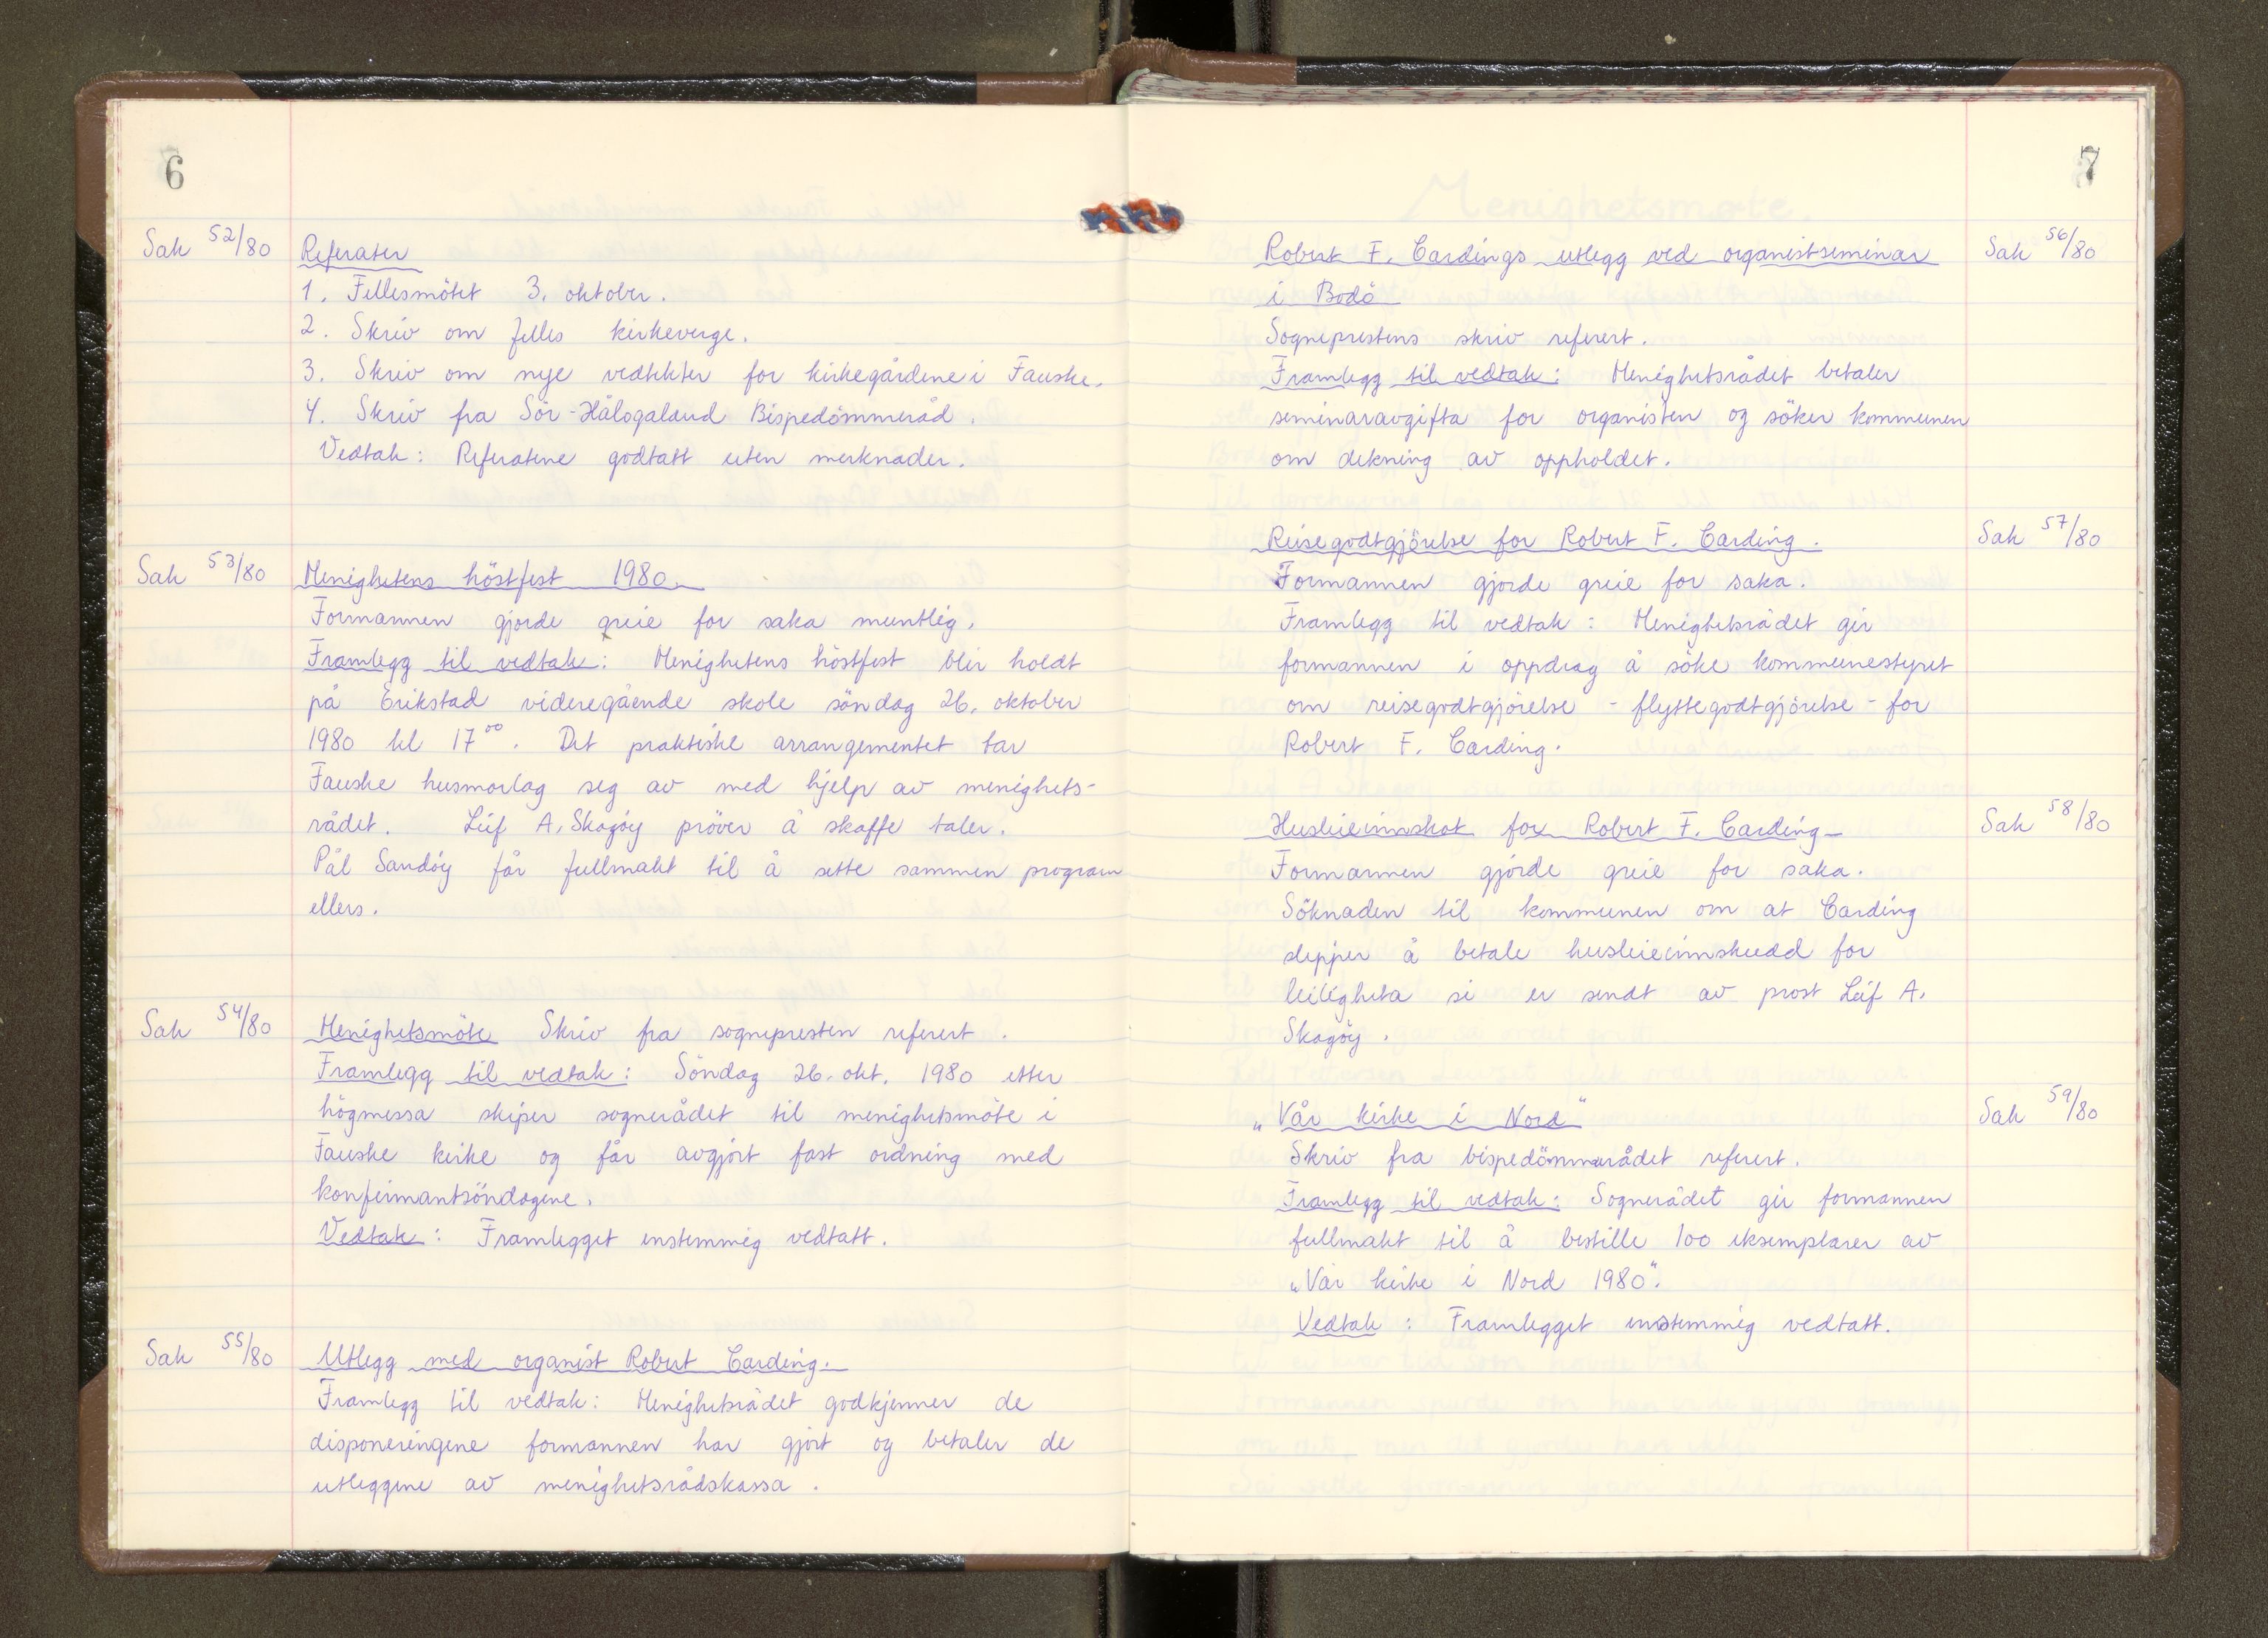 6
Sak 52/80 Referater
1. Fellesmötet 3. oktober.
2. Skriv om felles kirkeverge.
3. Skriv om nye vedtekter for kirkegårdene i Fauske.
4. Skriv fra Sör-Hålogaland Bispedömmeråd.
Vedtak: Referatene godtatt uten merknader.
Sak 53/80 Menighetens höstfest 1980.
Formannen gjorde greie for saka muntlig.
Framlegg til vedtak: Menighetens höstfest blir holdt
på Erikstad videregående skole söndag 26. oktober
1980 kl 17⁰⁰. Det praktiske arrangementet tar
Fauske husmorlag seg av med hjelp av menighets-
rådet. Leif A. Skagöy pröver å skaffe taler.
Pål Sandöy får fullmakt til å sette sammen program
ellers.
Sak 54/80 Menighetsmöte Skriv fra sognepresten referert.
Framlegg til vedtak: Söndag 26. okt. 1980 etter
högmessa skiper sognerådet til menighetsmöte i
Fauske kirke og får avgjort fast ordning med
konfirmantsöndagene.
Vedtak: Framlegget enstemmig vedtatt.
Sak 55/80 Utlegg med organist Robert Carding.
Framlegg til vedtak: Menighetsrådet godkjenner de
disponeringene formannen har gjort og betaler de
utleggene av menighetsrådskassa.
7
Robert F. Cardings utlegg ved organistseminar Sak 56/80
i Bodö
Sogneprestens skriv referert.
Framlegg til vedtak: Menighetsrådet betaler
seminaravgifta for organisten og söker kommunen
om dekning av oppholdet.
Reisegodtgjörelse for Robert F. Carding. Sak 57/80
Formannen gjorde greie for saka.
Framlegg til vedtak: Menighetsrådet gir
formannen i oppdrag å söke kommunestyret
om reisegodtgjörelse - flyttegodtgjörelse - for
Robert F. Carding.
Husleieinnskot for Robert F. Carding Sak 58/80
Formannen gjorde greie for saka.
Söknaden til kommunen om at Carding
slepper å betale husleieinnskudd for
leiligheta si er sendt av prost Leif A.
Skagöy.
„Vår kirke i Nord" Sak 59/80
Skriv fra bispedömmerådet referert.
Framlegg til vedtak: Sognerådet gir formannen
fullmakt til å bestille 100 eksemplarer av
„Vår kirke i Nord 1980".
Vedtak: Framlegget enstemmig vedtatt.